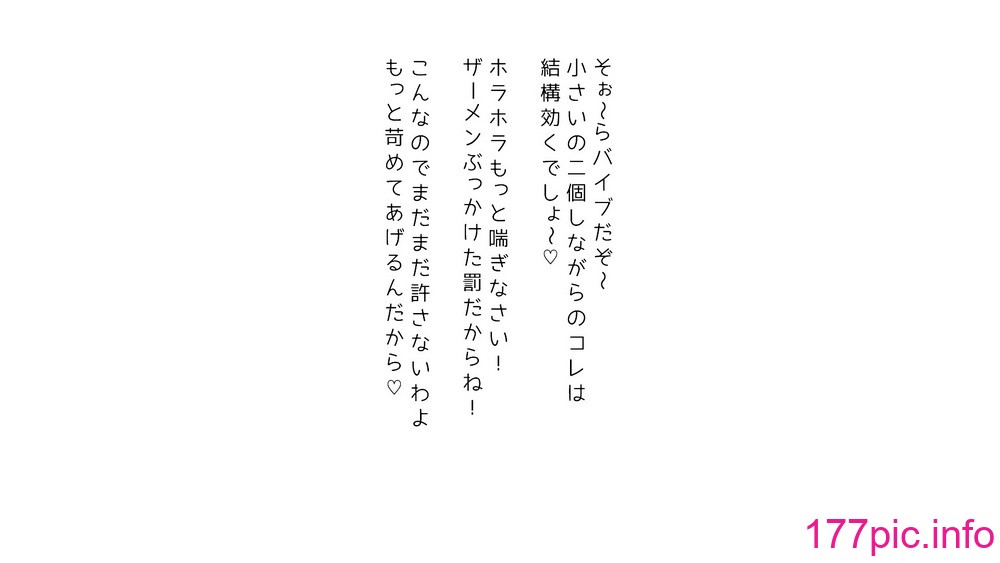 そぉ～らバイブだぞ～
小さいの二個しながらのコレは
結構効くでしょ～♡
ホラホラもっと喘ぎなさい！
ザーメンぶっかけた罰だからね！
こんなのでまだまだ許さないわよ
もっと苛めてあげるんだから♡
177pic.info